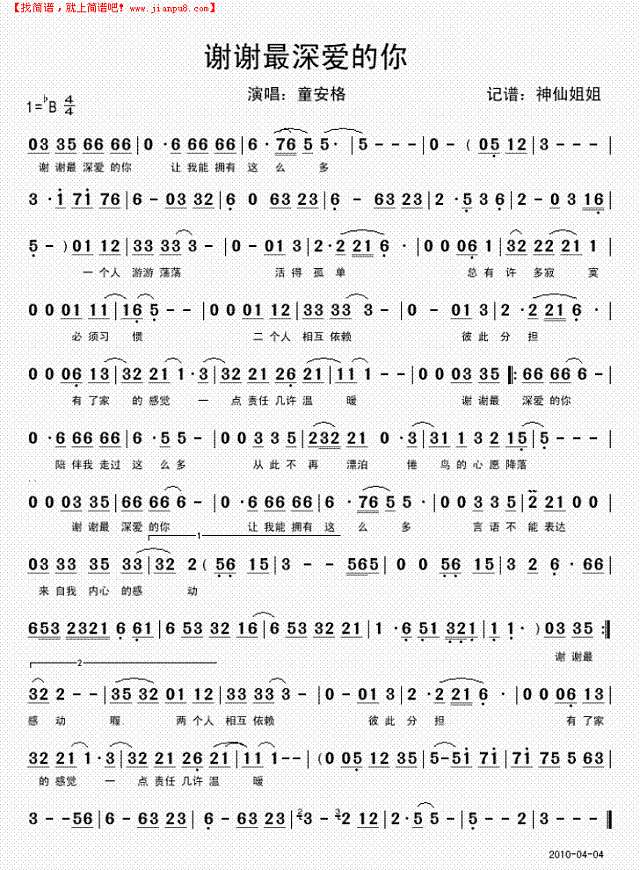 【找简谱，就上简谱吧! www.jianpu8.com】
谢谢最深爱的你
演唱：童安格 记谱：神仙姐姐
1=♭B 4/4
03 35 66 66 | 0 · 6 66 66 | 6 · 76 5 5 · | 5 - - - | 0 - ( 05 12 | 3 - - -
谢 谢最 深爱 的你 让 我能 拥有 这 么 多
3 · i 7i 76 | 6 - 03 32 | 6 0 63 23 | 6 - 63 23 | 2 · 5 3 6 | 2 - 03 16
5 - ) 01 12 | 33 33 3 - | 0 - 01 3 | 2 · 2 21 6 · | 0 0 06 1 | 32 22 21 1
一 个人 游游 荡荡 活得 孤 单 总 有 许 多寂 寞
0 0 01 11 | 16 5 - - | 0 0 01 12 | 33 33 3 · | 0 - 01 3 | 2 · 2 21 6 ·
必 须习 惯 二 个人 相互 依赖 彼此 分 担
0 0 06 13 | 32 21 1 · 3 | 32 21 26 21 | 11 1 - - | 0 0 03 35 |: 66 66 6 -
有 了家 的 感觉 一 点 责任 几许 温 暖 谢 谢最 深爱 的你
0 · 6 66 66 | 6 · 5 5 · | 0 0 03 35 | 232 21 0 · 3 | 31 13 32 15 | 5 - - -
陪伴我 走过 这 么 多 从 此 不 再 漂泊 倦 鸟 的 心愿 降落
0 0 03 35 | 66 66 6 - | 0 · 6 66 66 | 6 · 76 5 5 · | 0 0 35 35 | 22 21 0 0
谢 谢最 深爱 的你 让 我能 拥有 这 么 多 言 语 不 能 表达
1
03 33 35 33 | 32 2 ( 56 15 | 3 - - 565 | 0 0 56 15 | 3 2 6 · 66
来 自我 内心 的感 动
653 2321 6 61 | 6 53 32 16 | 6 53 33 32 | 1 1 · - · | 6 51 321 | 1 1 · ) 03 35 :|
谢 谢最
2
32 2 - - | 35 32 01 12 | 33 33 3 · | 0 - 01 3 | 2 · 2 21 6 · | 0 0 06 13
感 动 喔 两 个人 相互 依赖 彼此 分 担 有 了家
32 21 1 · 3 | 32 21 26 21 | 11 1 - - | ( 0 05 12 | 3 5 - 5i 7i | 7i 75 5 63
的 感觉 一 点 责任 几许 温 暖
3 - - 56 | 6 - 63 23 | 6 - 63 23 | 2 - 3 · | 12 2 · 5 | 5 - - - |
2010-04-04